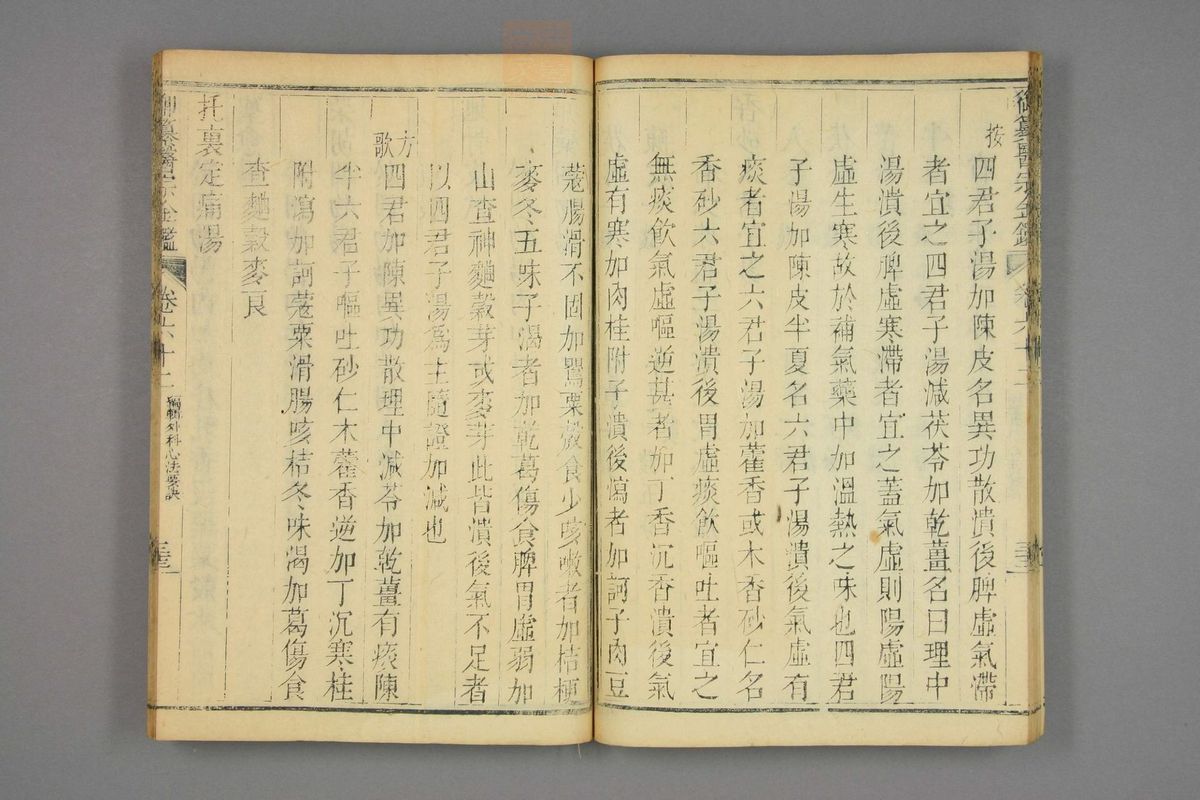 按四君子湯加陳皮名異功散潰後脾虛氣滯
者宜之四君子湯減茯苓加乾薑名曰理中
湯潰後脾虛寒滯者宜之蓋氣虛則陽虛陽
虛生寒故於補氣藥中加溫熱之味也四君
子湯加陳皮半夏名六君子湯潰後氣虛有
痰者宜之六君子湯加藿香或木香砂仁名
香砂六君子湯潰後胃虛痰飲嘔吐者宜之
無痰飲氣虛嘔逆甚者加丁香沉香潰後氣
虛有寒加肉桂附子潰後瀉者加訶子肉豆
蔻腸滑不固加罌粟殼食少咳嗽者加桔梗
麥冬五味子渴者加乾葛傷食脾胃虛弱加
山查神麯穀芽或麥芽此皆潰後氣不足者
以四君子湯爲主隨證加減也
方歌四君加陳異功散理中減苓加乾薑有痰陳
半六君子嘔吐砂仁木藿香逆加丁沉寒桂
附瀉加訶蔻粟滑腸咳桔冬味渴加葛傷食
查麯穀麥良
托裏定痛湯
御纂醫宗金鑑 卷六十二 編輯外科心法要訣